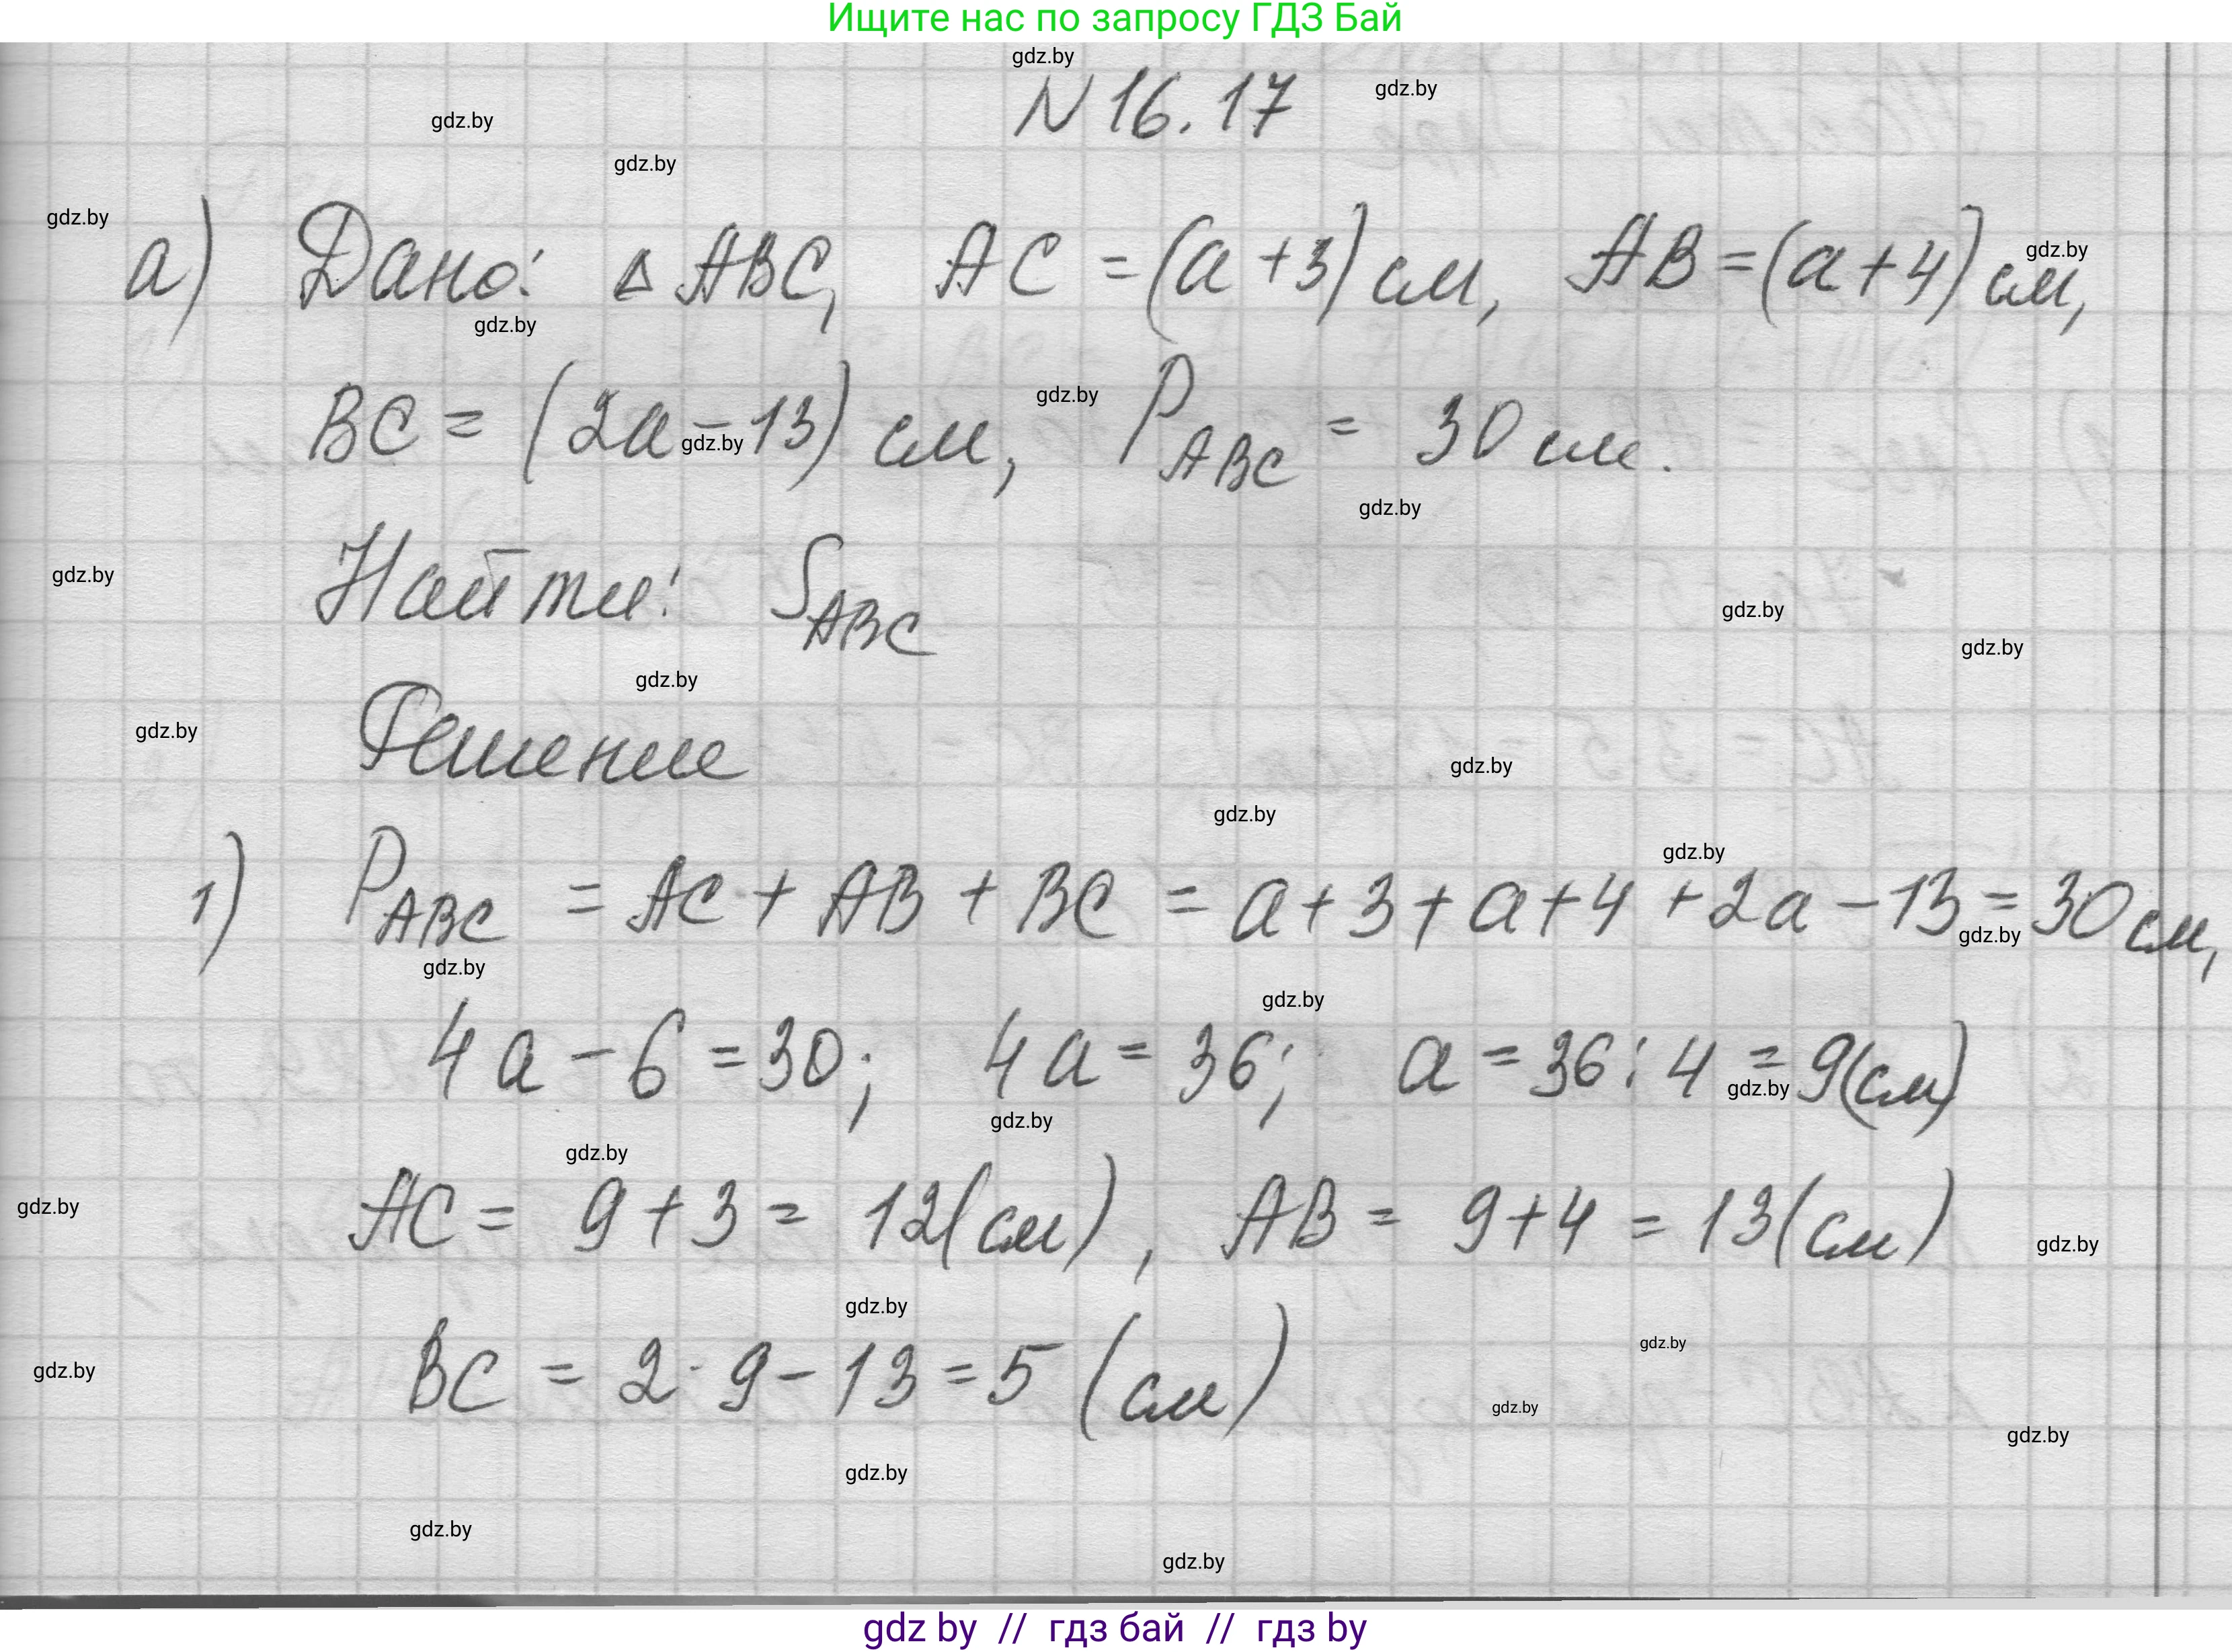 Ищите нас по запросу ГДЗ Бай
gdz.by
N 16.17
gdz.by
gdz.by
gdz.by
gdz.by
gdz.by
а) Дано: △ ABC, AC = (a + 3) см, AB = (a + 4) см,
gdz.by
gdz.by
BC = (2a - 13) см, P ABC = 30 см.
gdz.by
gdz.by
gdz.by
Найти: S ABC
gdz.by
gdz.by
gdz.by
Решение
gdz.by
gdz.by
gdz.by
gdz.by
1) P ABC = AC + AB + BC = a + 3 + a + 4 + 2a - 13 = 30 см,
gdz.by
gdz.by
gdz.by
4a - 6 = 30; 4a = 36; a = 36 : 4 = 9(см)
gdz.by
gdz.by
gdz.by
gdz.by
AC = 9 + 3 = 12(см), AB = 9 + 4 = 13(см)
gdz.by
gdz.by
gdz.by
gdz.by
BC = 2 · 9 - 13 = 5 (см)
gdz.by
gdz.by
gdz.by
gdz.by
gdz.by
gdz by // гдз бай // гдз by